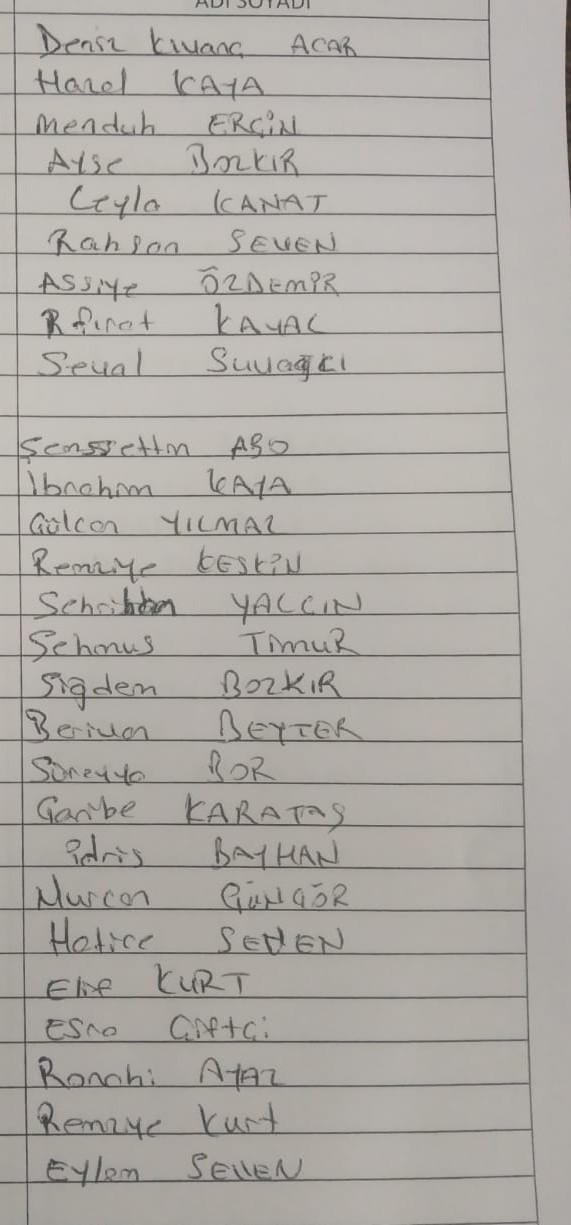 ADI SOYADI
Deniz Kıvanç ACAR
Hazel KAYA
Menduh ERGİN
Ayşe BOZKIR
Leyla KANAT
Rahşan SEVEN
Assiye ÖZDEMİR
R fırat KAYAÇ
Seval Suvağcı
Şemssettin ABO
İbrahim KAYA
Gülcan YILMAZ
Remziye KESKİN
YALÇIN
Sehmus TİMUR
Sigdem BOZKIR
Berivan BEYTER
Süreyya BOR
Garibe KARATAŞ
İdris BAYHAN
Nurcan GÜNGÖR
Hatice SEVEN
Elif KURT
Esra Çiftçi
Ronahi AYAZ
Remziye Kurt
Eylem SEVEN